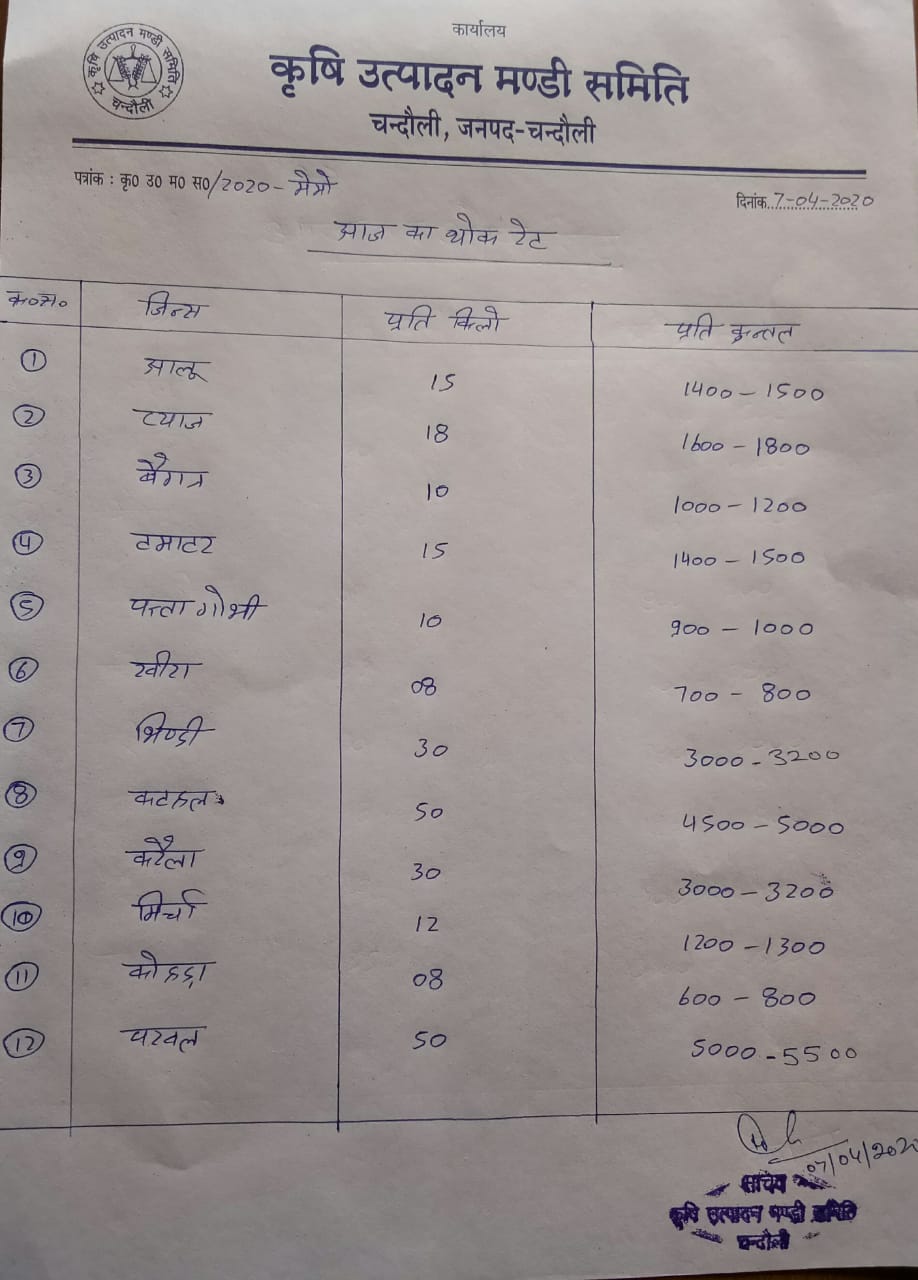 कार्यालय
कृषि उत्पादन मण्डी समिति
चन्दौली
कृषि उत्पादन मण्डी समिति
चन्दौली, जनपद-चन्दौली
पत्रांक : कृ0 उ0 म0 स0/2020-मेमो
दिनांक 7-04-2020
आज का थोक रेट
क्र०स० जिन्स प्रति किलो प्रति कुन्तल
1 आलू 15 1400 - 1500
2 प्याज 18 1600 - 1800
3 बैगन 10 1000 - 1200
4 टमाटर 15 1400 - 1500
5 पत्ता गोभी 10 900 - 1000
6 खीरा 08 700 - 800
7 भिण्डी 30 3000 - 3200
8 कटहल 50 4500 - 5000
9 करैला 30 3000 - 3200
10 मिर्चा 12 1200 - 1300
11 कोहड़ा 08 600 - 800
12 परवल 50 5000 - 5500
07/04/2020
सचिव
कृषि उत्पादन मण्डी समिति
चन्दौली